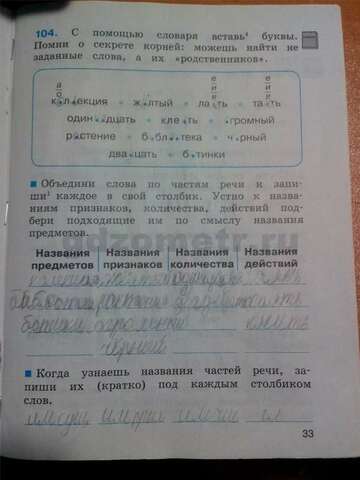 104. С помощью словаря вставь⁴ буквы.
Помни о секрете корней: можешь найти не
заданные слова, а их «родственников».
а е е
о и и
к•л•екция • ж•лтый • ла•ть • та•ть
один••дцать • кле•ть • •громный
р•стение • б•бл••тека • ч•рный
два•цать • б•тинки
Объедини слова по частям речи и запи-
ши¹ каждое в свой столбик. Устно к назва-
ниям признаков, количества, действий под-
бери подходящие им по смыслу названия
предметов.
gdzometr.ru
Названия Названия Названия Названия
предметов признаков количества действий
огромный клеить
чёрный
Когда узнаешь названия частей речи, за-
пиши их (кратко) под каждым столбиком
слов.
33